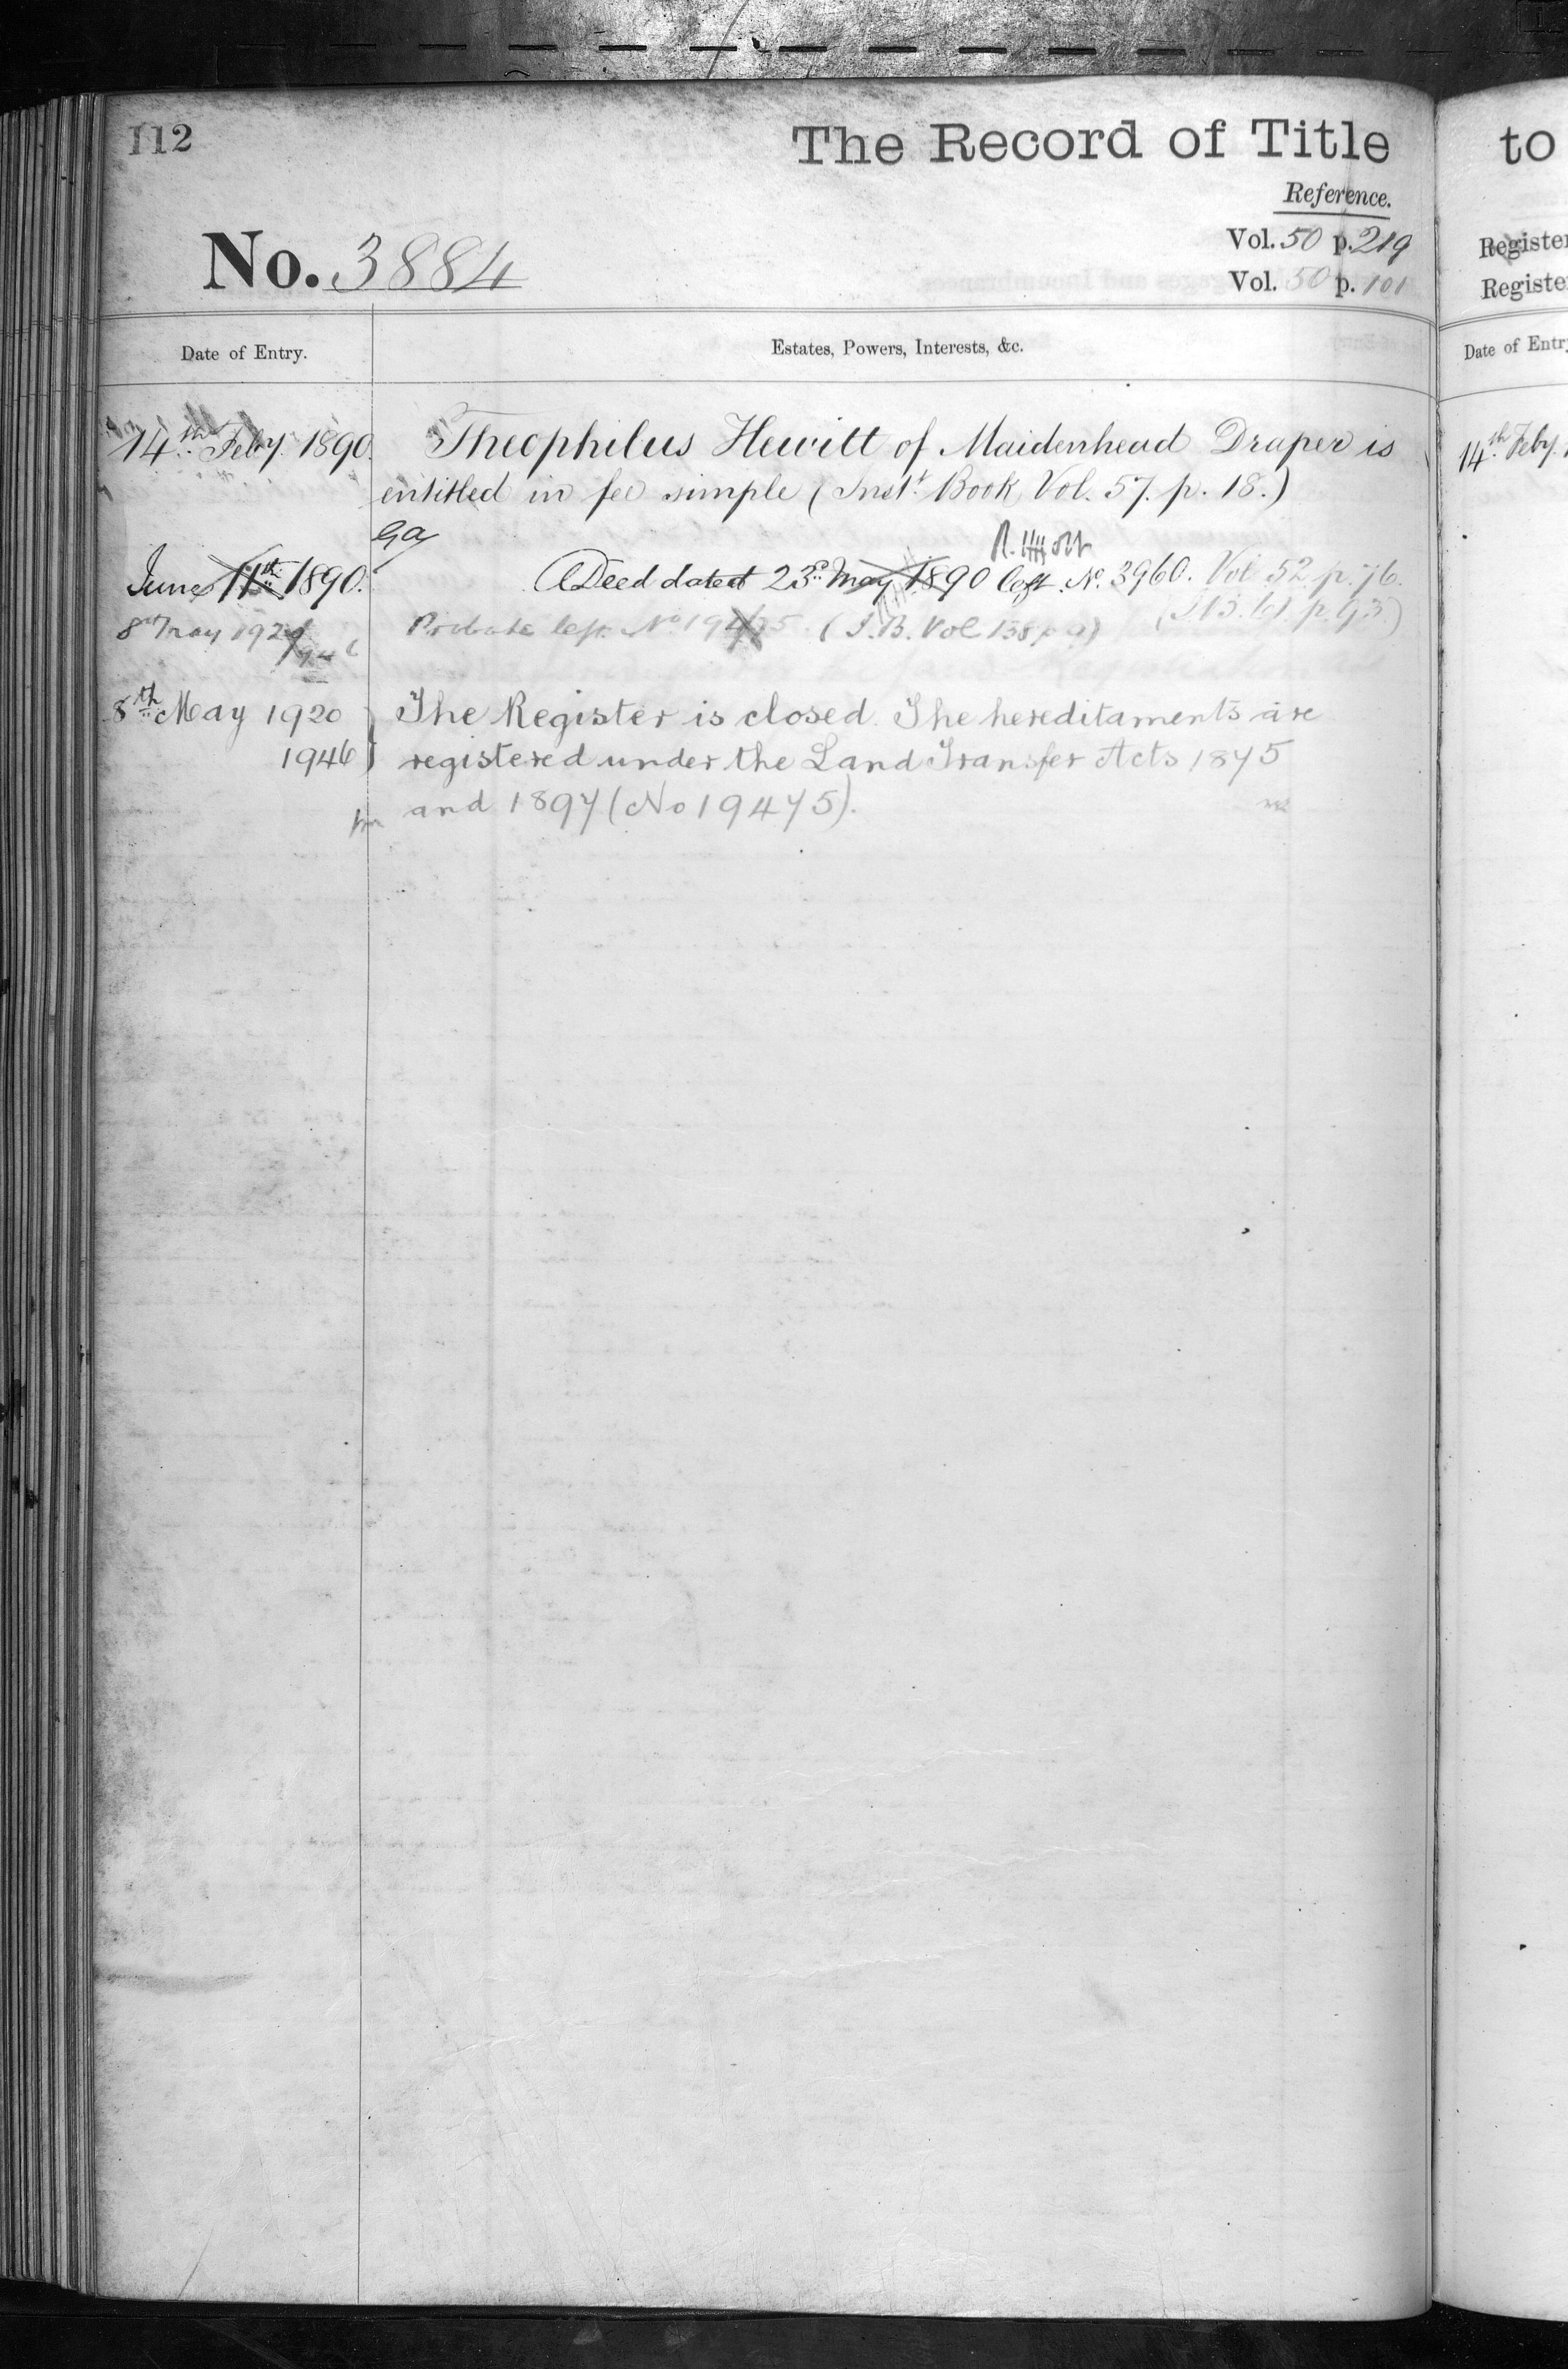 112
The Record of Title
Reference.
No. 3884
Vol. 50 p. 219
Vol. 50 p. 101
Date of Entry.
Estates, Powers, Interests, &c.
14th Feby. 1890.
Theophilus Hewitt of Maidenhead Draper is
entitled in fee simple (Inst. Book Vol. 57. p. 18.)
June 11th 1890.
Deed dated 23rd May 1890 left. No. 3960. Vol 52 p. 76.
8th May 1920
Probate left. No 19475 (I.B. Vol 138 p 9)
8th May 1920
1946
The Register is closed. The hereditaments are
registered under the Land Transfer Acts 1875
and 1897 (No 19475).
to
Register
Register
Date of Entry
14th Feby.